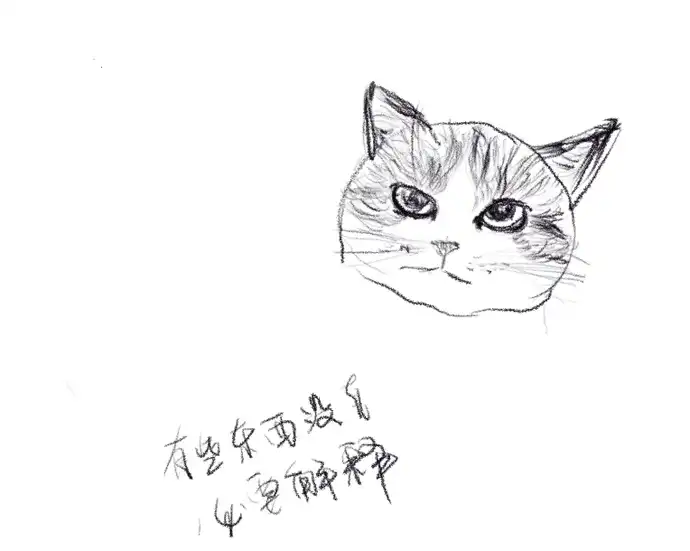 有些东西没有
必要解释